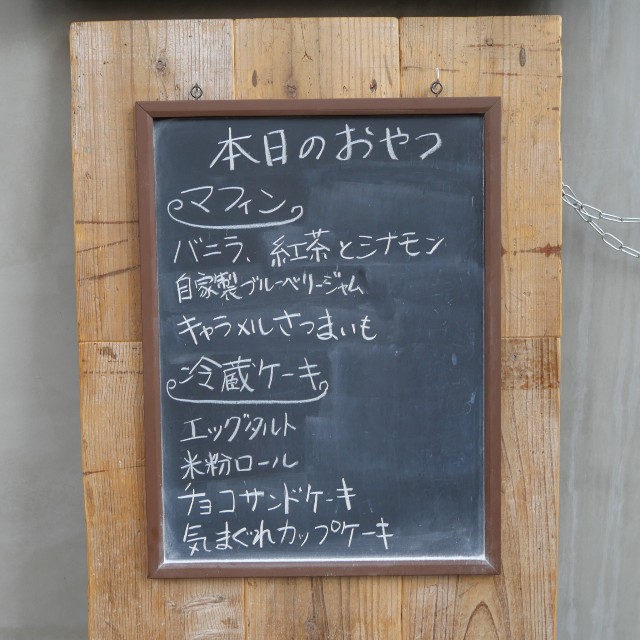 本日のおやつ
マフィン
バニラ、紅茶とシナモン
自家製ブルーベリージャム
キャラメルさつまいも
冷蔵ケーキ
エッグタルト
米粉ロール
チョコサンドケーキ
気まぐれカップケーキ